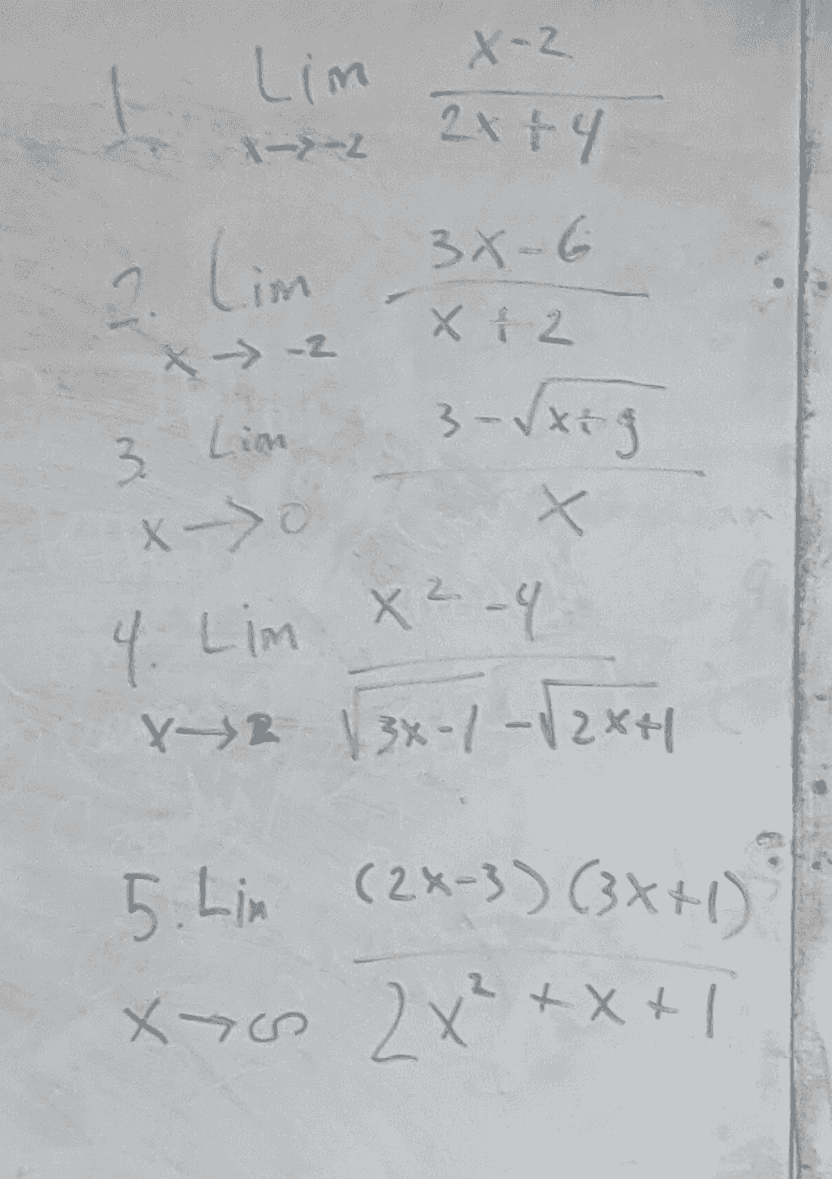 1. Lim x-2
x→-2 2x+4
2. Lim 3x-6
x→-2 x+2
3. Lim 3-√x+9
x→0 x
4. Lim x²-4
x→2 √3x-1 -√2x+1
5. Lim (2x-3)(3x+1)
x→∞ 2x²+x+1